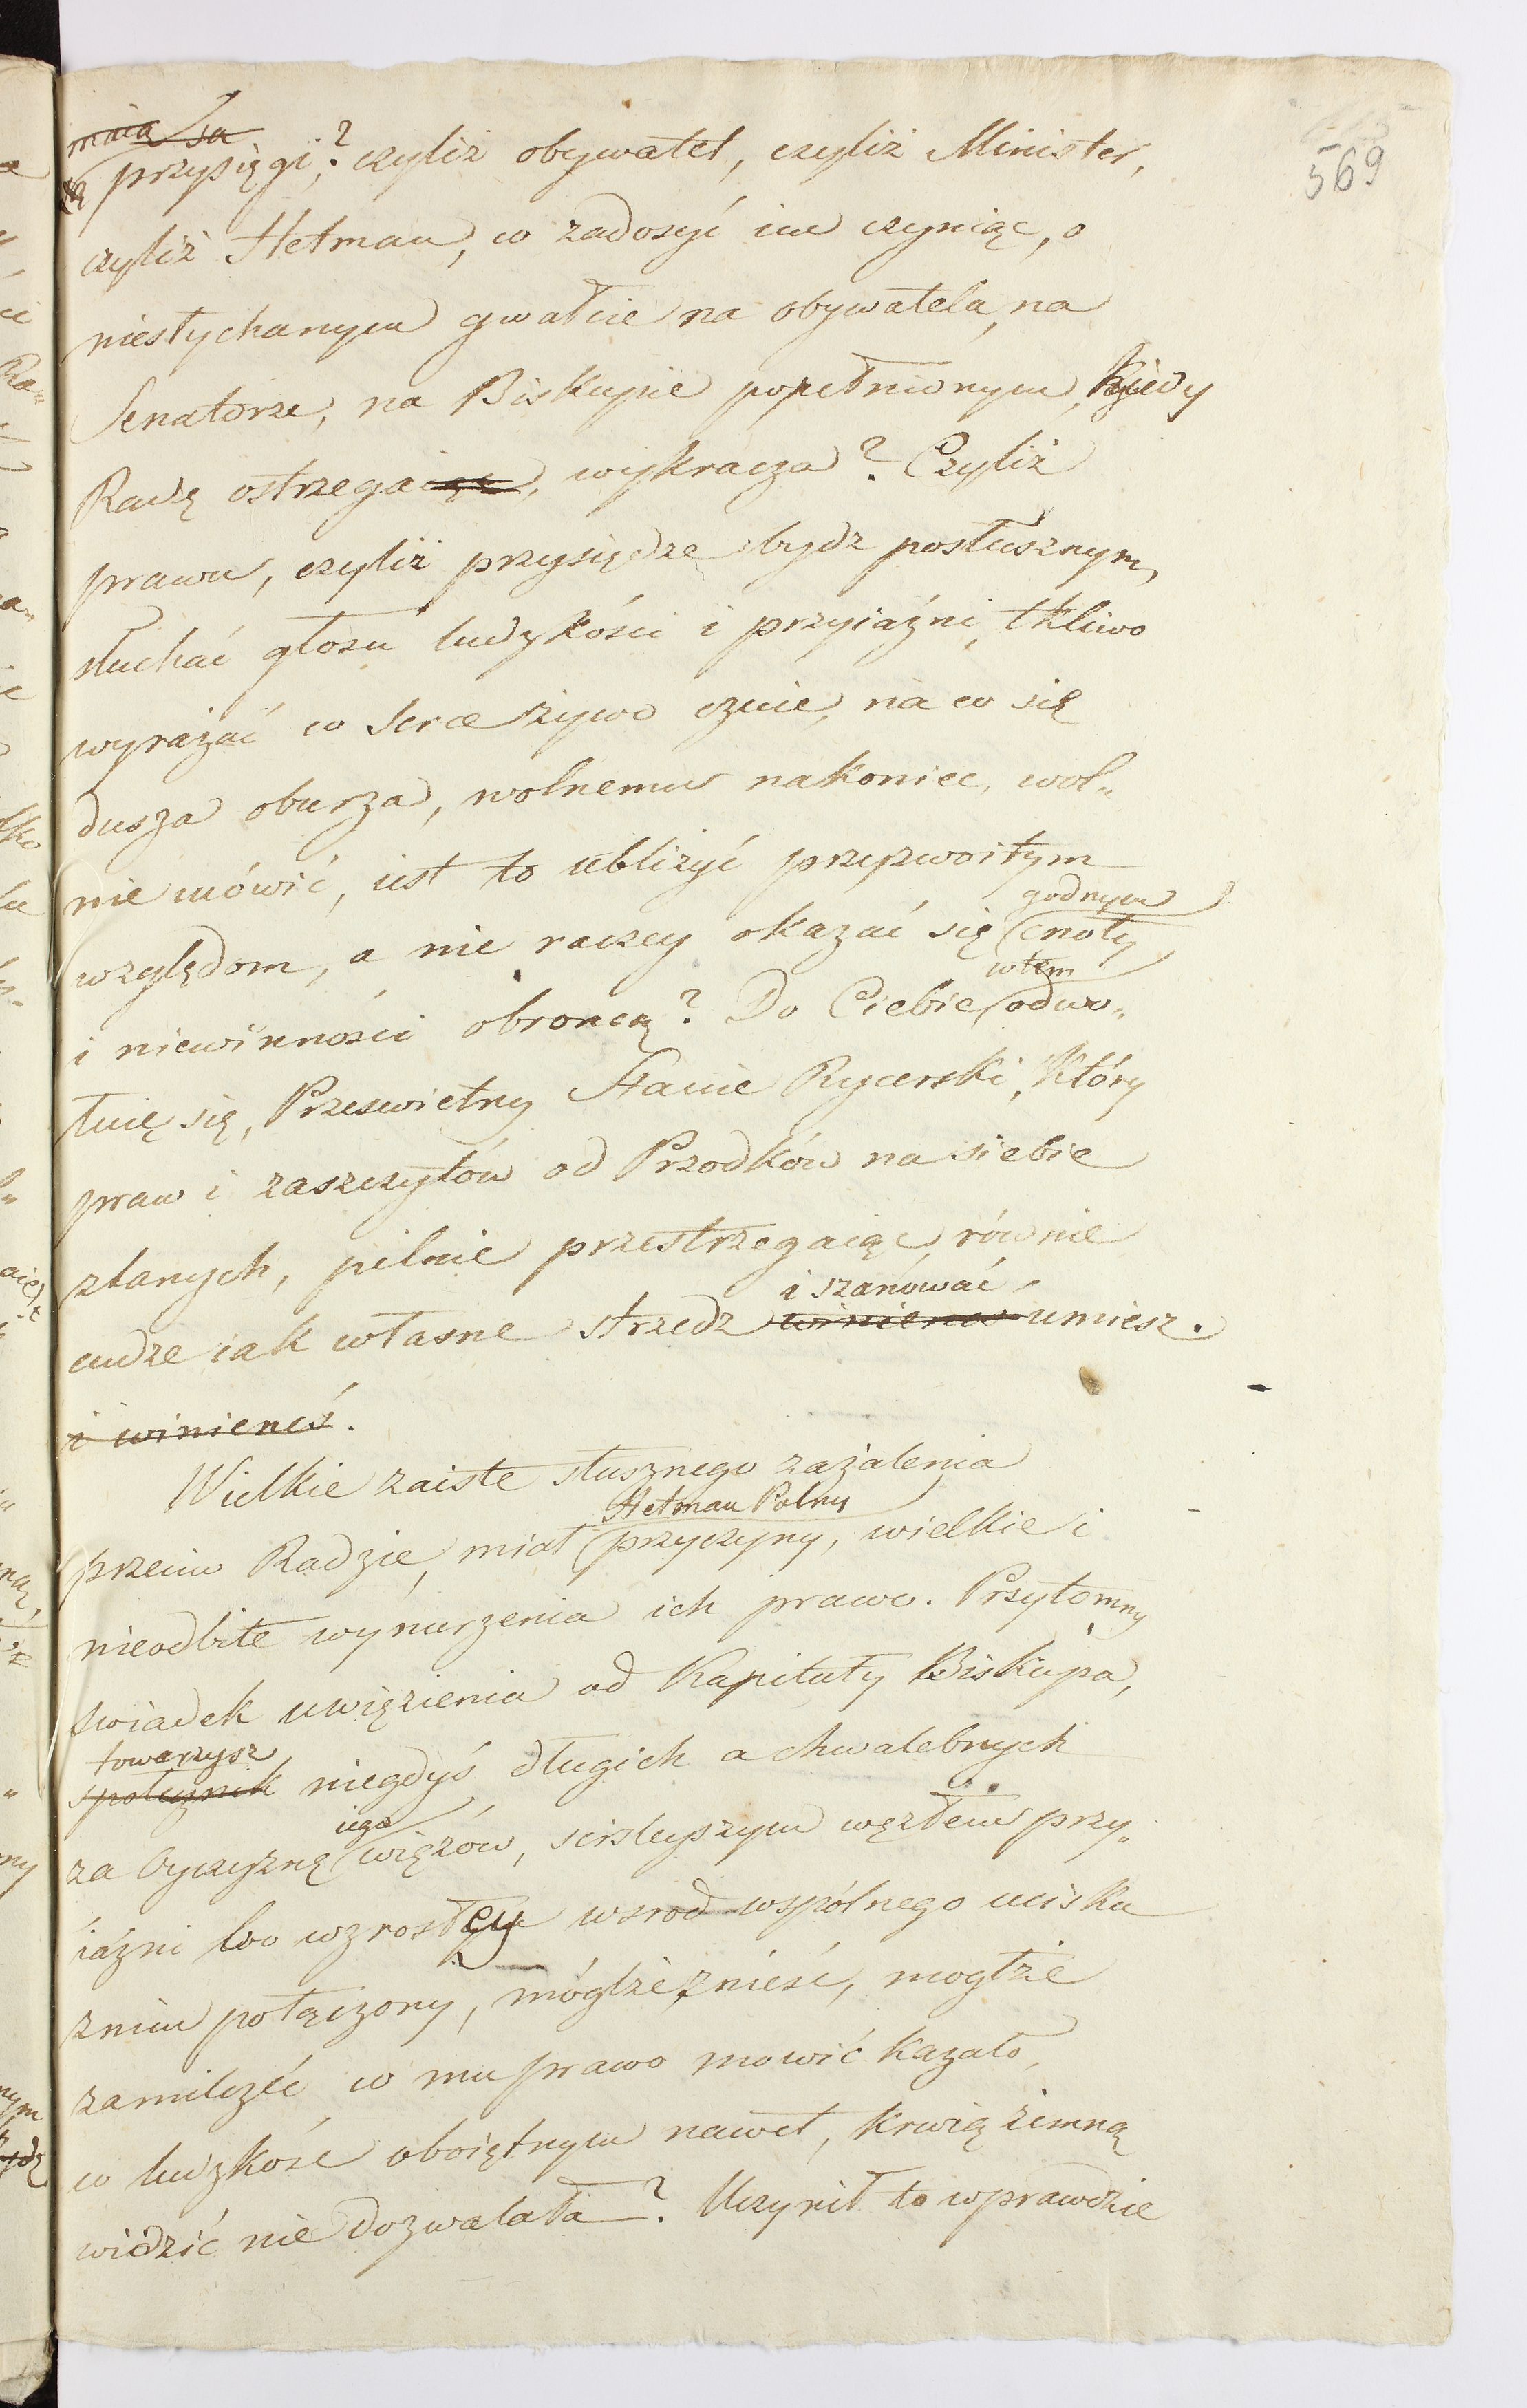 569
maią są
przysięgi? czyliż obywatel, czyliż Minister,
czyliż Hetman, co zadosyć im czyniąc, o
niesłychanym gwałcie na obywatelu, na
Senatorze, na Biskupie popełnionym, kiedy
Radę ostrzegaiąc, wykracza? Czyliż
prawu, czyliż przysiędze bydz posłusznym,
słuchać głosu ludzkości i przyiaźni, tkliwo
wyrażać co serce żywo czuie, na co się
dusza oburza, wolnemu nakoniec, wol„
nie mówić, iest to ubliżyć przyzwoitym
godnym
względom, a nie raczey okazać się cnoty
wtem
i niewinności obrońcą? Do Ciebie odwo„
łuię się, Przeswietny Stanie Rycerski, który
praw i zaszczytów od Przodków na siebie
zlanych, pilnie przestrzegaiąc, równie
i szanować
cudze iak własne strzedz winienes umiesz.
i winieneś.
Wielkie zaiste słusznego zażalenia
Hetman Polny
przeciw Radzie, miał przyczyny, wielkie i
nieodbite wynurzenia ich prawo. Przytomny
swiadek uwięzienia od Kapituły Biskupa,
towarzysz
spolucznik niegdyś długich a chwalebnych
iego
za Oyczyznę więzów, scisleyszym węzłem przy„
iaźni bo wzrosłey wsrod wspólnego ucisku
znim połączony, mógłże znieść, mogłże
zamilczéć co mu prawo mowić kazało,
co ludzkość oboiętnym nawet, krwią zimną
widzić nie dozwalała? Uczynił to wprawdzie